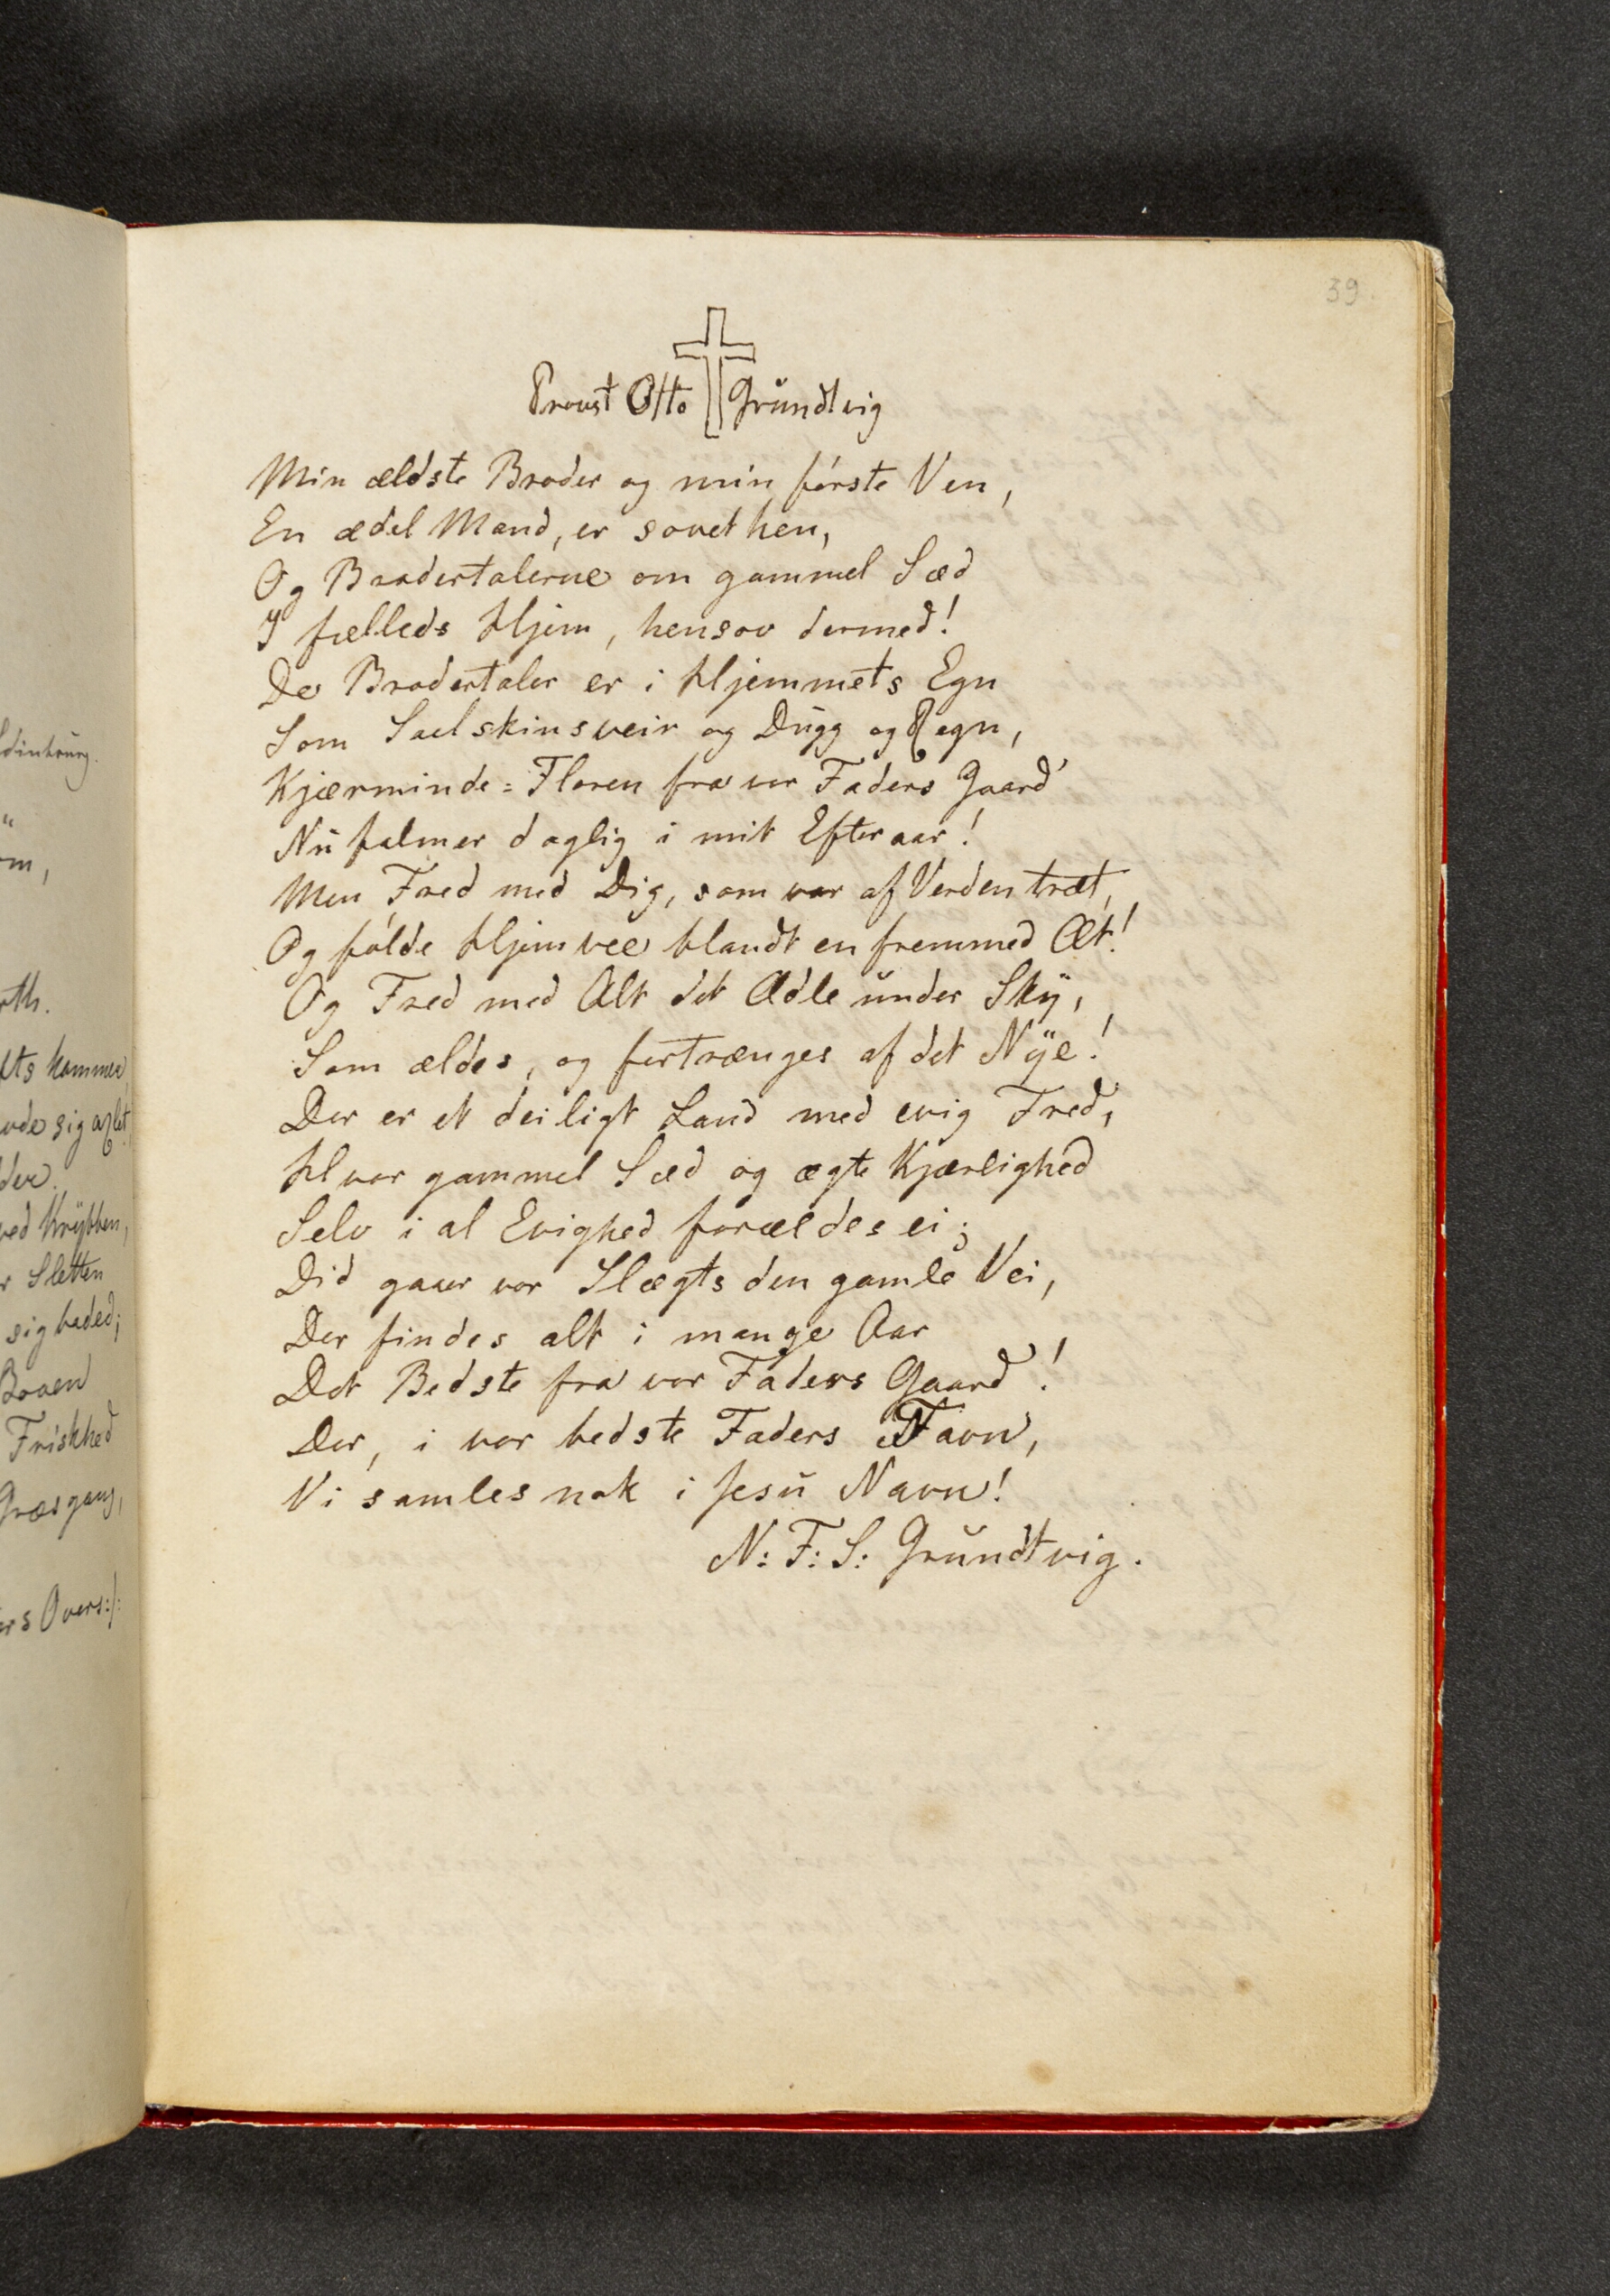 39.
Provst Otto Grundtvig
Min ældste Broder og min første Ven,
En ædel Mand, er sovet hen,
Og Brodertalerne om gammel Sæd
I fælleds Hjem, hensov dermed!
De Brodertaler er i Hjemmets Egn
Som Soelskinsveir og Dugg og Regn,
Kjærminde=Floren fra vor Faders Gaard
Nu falmer daglig i mit Efteraar!
Men Fred med Dig, som var af Verden træt,
Og følde Hjemvee blandt en fremmed Æt!
Og Fred med Alt det Ædle under Sky,
Som ældes, og fortrænges af det Nye!
Der er et deiligt Land med evig Fred,
Hvor gammel Sæd og ægte Kjærlighed
Selv i al Evighed forældes ei;
Did gaaer vor Slægts den gamle Vei,
Der findes alt i mange Aar
Det Bedste fra vor Faders Gaard!
Der, i vor bedste Faders Favn,
Vi samles nok i Jesu Navn!
N: F: S: Grundtvig.
kammer
sig
ved Krybben,
Sletten
sig baded;
Friskhed
Græsgang,
Overs:/: